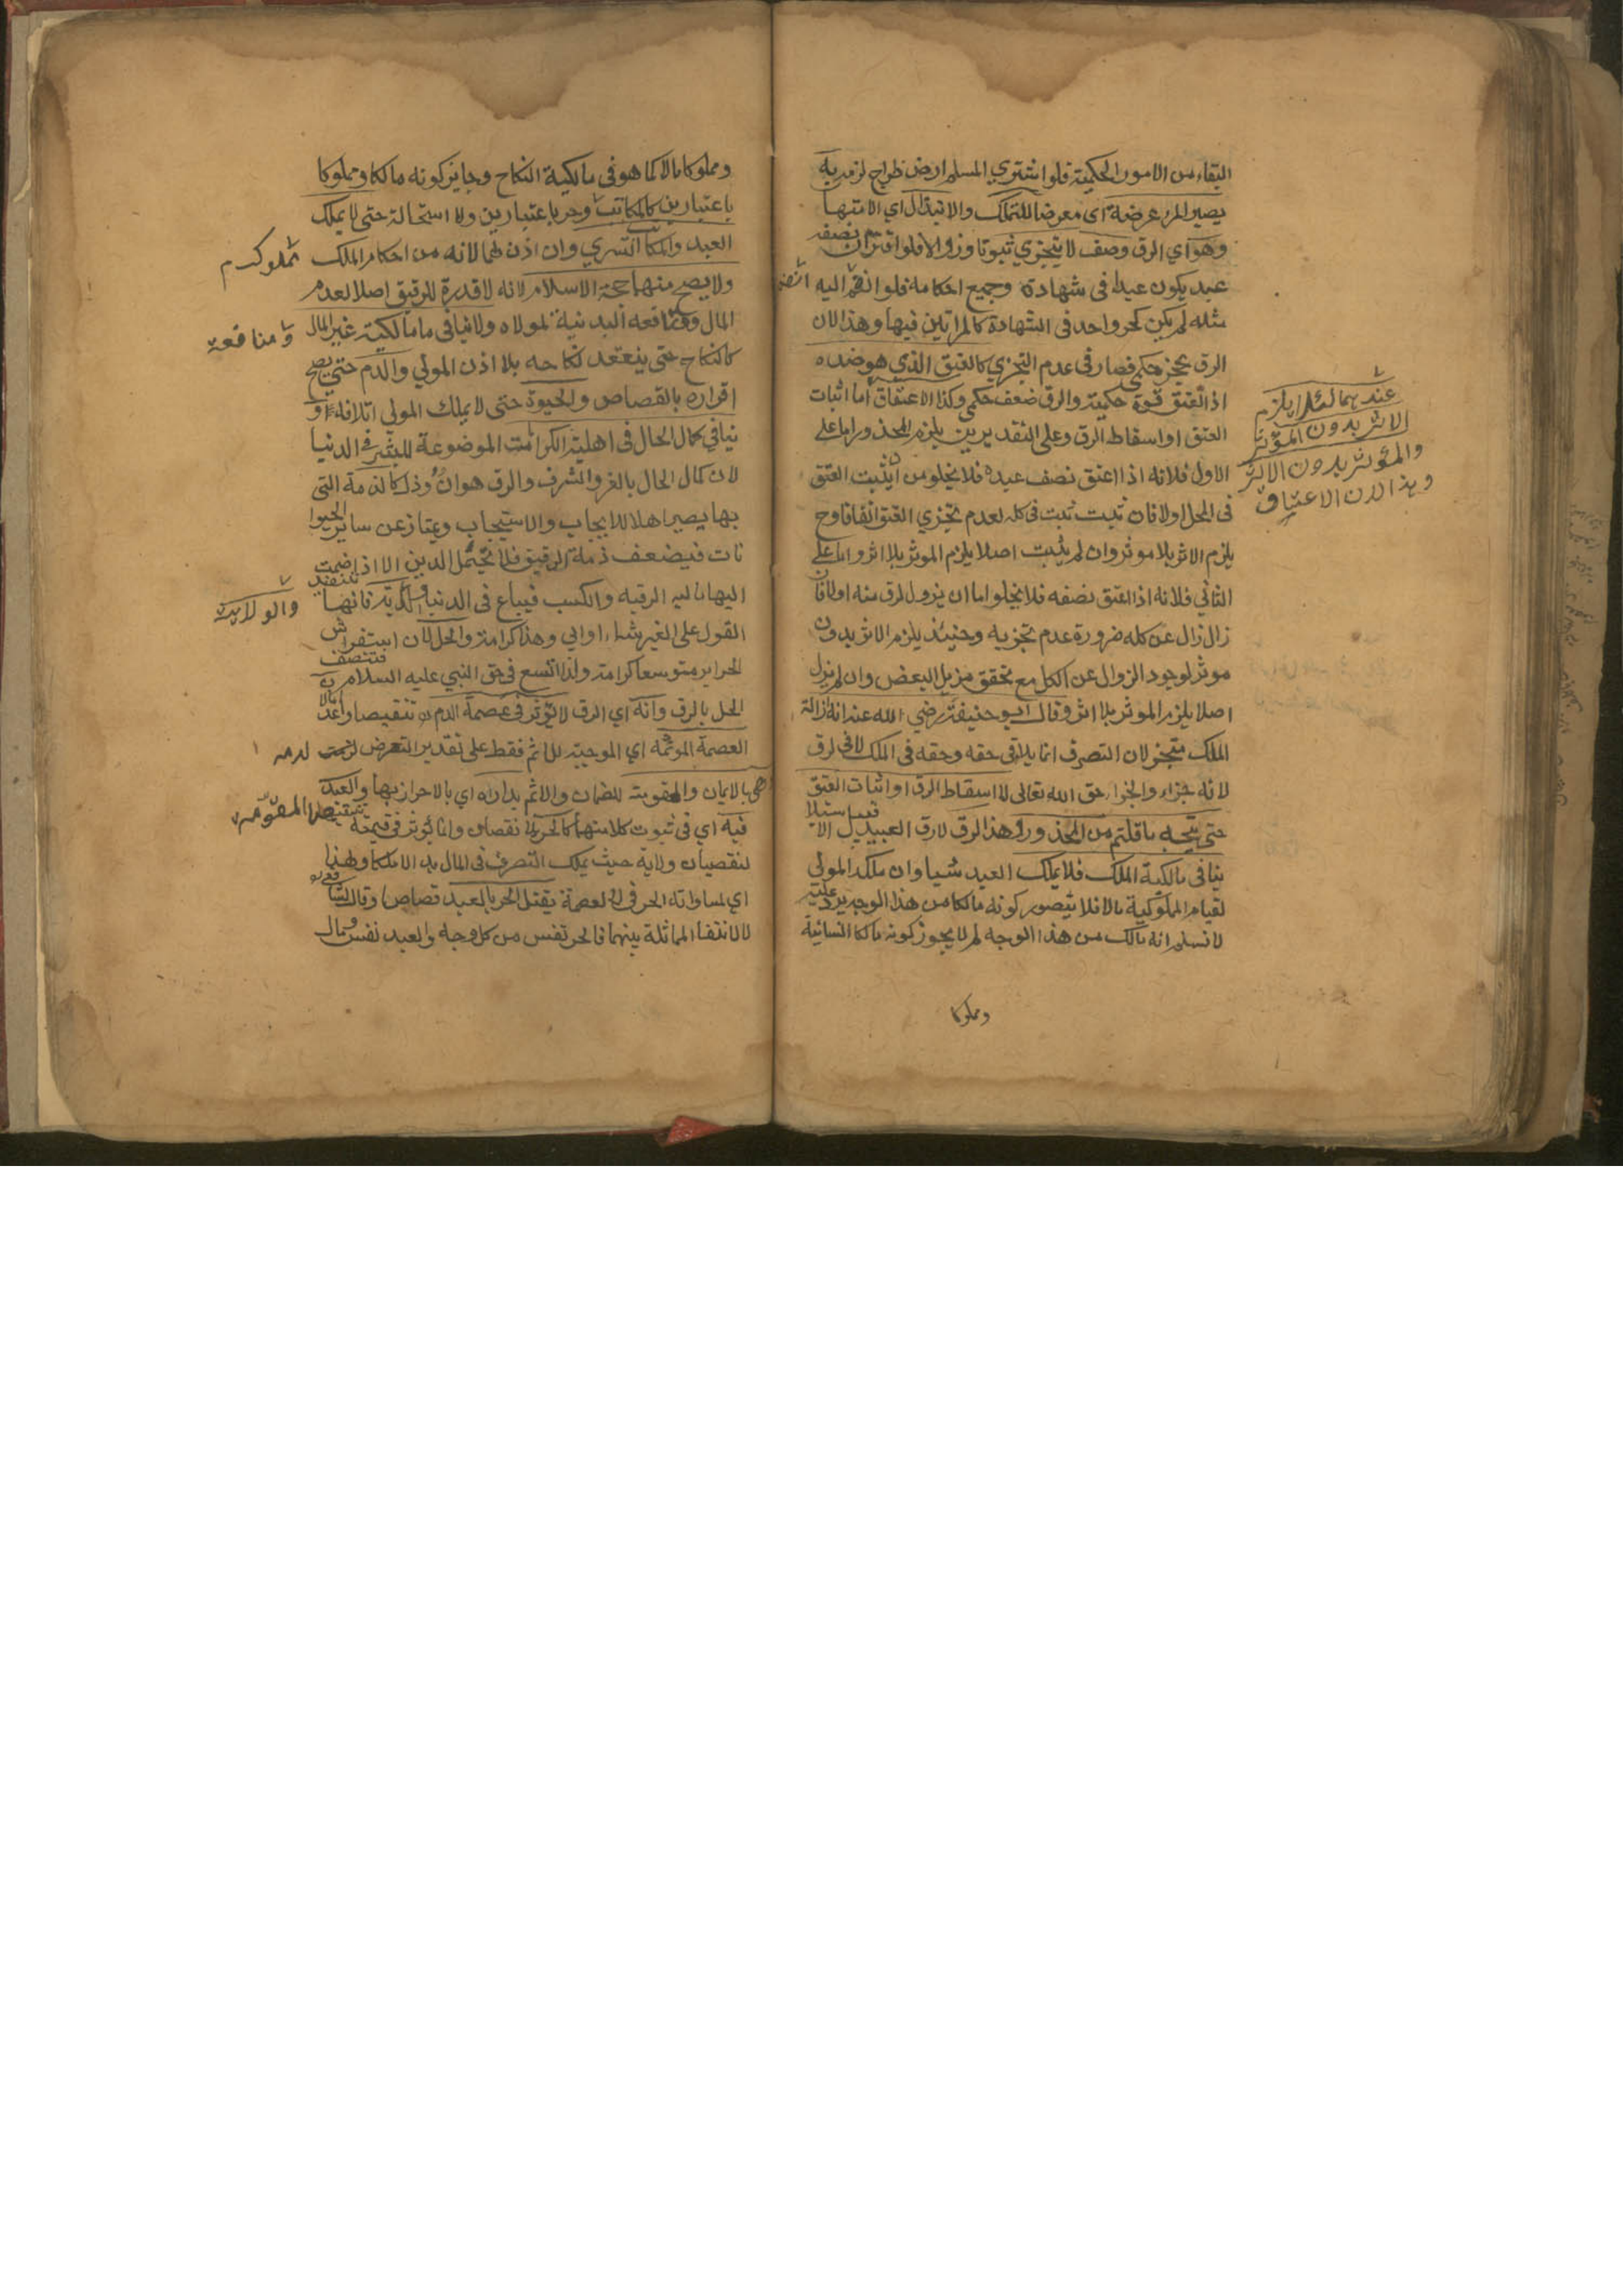 البقاء من الامور الحكمية فلو اشتري المسلم ارض خراج لزمه به
يصير المرء عرضة اي معرضا للتملك والابتذال اي الامتها
وهو اي الرق وصف لا يتجزي ثبوتا وزوالا فلو اقر ان نصفه
عبد يكون عبدا في شهادة وجميع احكامه فلو انضم اليه
مثله لم يكن كحر واحد في الشهادة كالمراتين فيها وهذا لان
الرق عجز حكمي فصار في عدم التجزي كالعتق الذي هو ضده
اذ العتق قوة حكمية والرق ضعف حكمي وكذا الاعتاق اما اثبات
العتق او اسقاط الرق وعلي التقديرين يلزم المحذور اما علي
الاول فلانه اذا اعتق نصف عبده فلا يخلو من ان يثبت العتق
في المحل اولا فان ثبت ثبت في كله لعدم تجزي العتق اتفاقا وح
يلزم الاثر بلا موثر وان لم يثبت اصلا يلزم الموثر بلا اثر واما علي
الثاني فلانه اذا اعتق نصفه فلا يخلوا اما ان يزول الرق منه اولا فان
زال زال عن كله ضرورة عدم تجزيه وحينئذ يلزم الاثر بدون
موثر لوجود الزوال عن الكل مع تحقق مزيل البعض وان لم يزل
اصلا يلزم الموثر بلا اثر وقال ابو حنيفة رضي الله عنه انه ازالة
الملك متجز لان التصرف انما يلاقي حقه وحقه في الملك لا في الرق
لانه جزاء والجزاء حق الله تعالى لا اسقاط الرق او اثبات العتق
حتي يتجه ما قلتم من المحذور وهذا الرق لا رق العبيد
ينافي مالكية الملك فلا يملك العبد شيا وان ملكه المولي
لقيام المملوكية مالا فلا يتصور كونه مالكا من هذا الوجه يرد عليه
لا نسلم انه مالك من هذا الوجه لم لا يجوز كونه مالكا انسانية
عندهما لئلا يلزم
الاثر بدون المؤثر
والمؤثر بدون الاثر
وهذا لان الاعتاق
ومملوكا
ومملوكا مالا كما هو في مالكية النكاح وجايز كونه مالكا ومملوكا
باعتبارين كالمكاتب وحر باعتبارين ولا استحالة حتى لا يملك
العبد والمكاتب التسري وان اذن لهما لانه من احكام الملك
ولا يصح منهما حجة الاسلام لانه لا قدرة للرقيق اصلا لعدم
المال ومنافعه البدنية لمولاه ولا ينافي مالكية غير المال
كالنكاح حتي ينعقد نكاحه بلا اذن المولي والدم حتي يصح
اقراره بالقصاص والحيوة حتى لا يملك المولي اتلافه
ينافي كمال الحال في اهلية الكرامت الموضوعة للبشر في الدنيا
لان كمال الحال بالعز والشرف والرق هوان وذلك كالذمة التي
بها يصير اهلا للايجاب والاستيجاب ويمتاز عن ساير الحيوا
نات فيضعف ذمة الرقيق فلا يحتمل الدين الا اذا ضمت
اليها مالية الرقبة والكسب فيباع في الدين فانها
القول على الغير شاء او ابي وهذا كرامة والحل لان استفراش
الحراير متوسعا كرامة ولذا اتسع في حق النبي عليه السلام
الحل بالرق وانه اي الرق لا يؤثر في عصمة الدم تنقيصا
العصمة الموثمة اي الموجبة للاثم فقط علي تقدير التعرض
بالايمان والمقومة للضمان والاثم بداره اي بالاحراز بها والعبد
فيه اي في ثبوت كلا منهما كالحر لا نقصان وانما يؤثر في قيمته
لنقصان ولاية حيث يملك التصرف في المال يدا لا ملكا ولهذا
اي لمساواته الحر في العصمة يقتل الحر بالعبد قصاصا وقال
لا لانتفاء المماثلة بينهما فالحر نفس من كل وجه والعبد نفس ومال
ومنافعه
والولاية